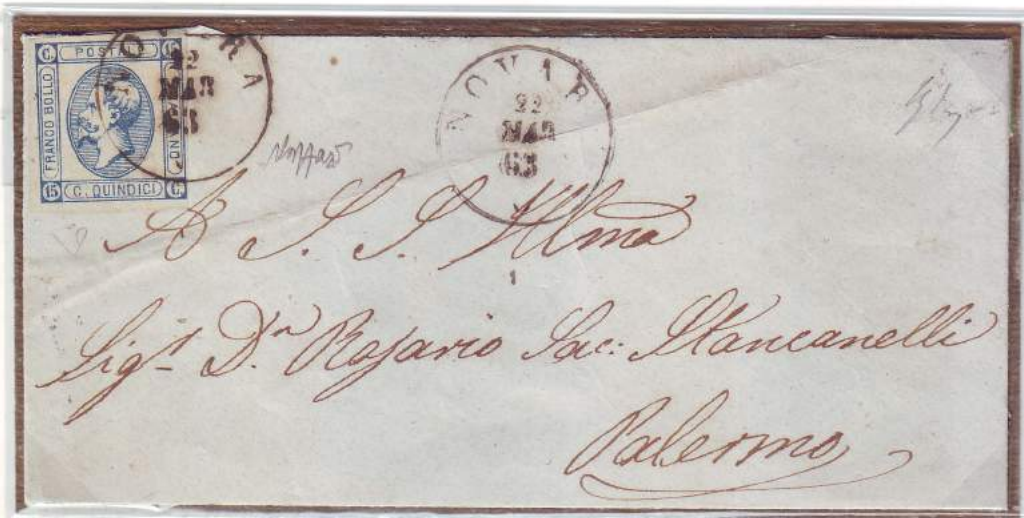 C. POSTA 15
FRANCO BOLLO
15 C. QUINDICI C.
NOVARA
22
MAR
63
NOVAR
22
MAR
63
A S. S. Illma
Sigr Dn Rosario Sac: Stancanelli
Palermo